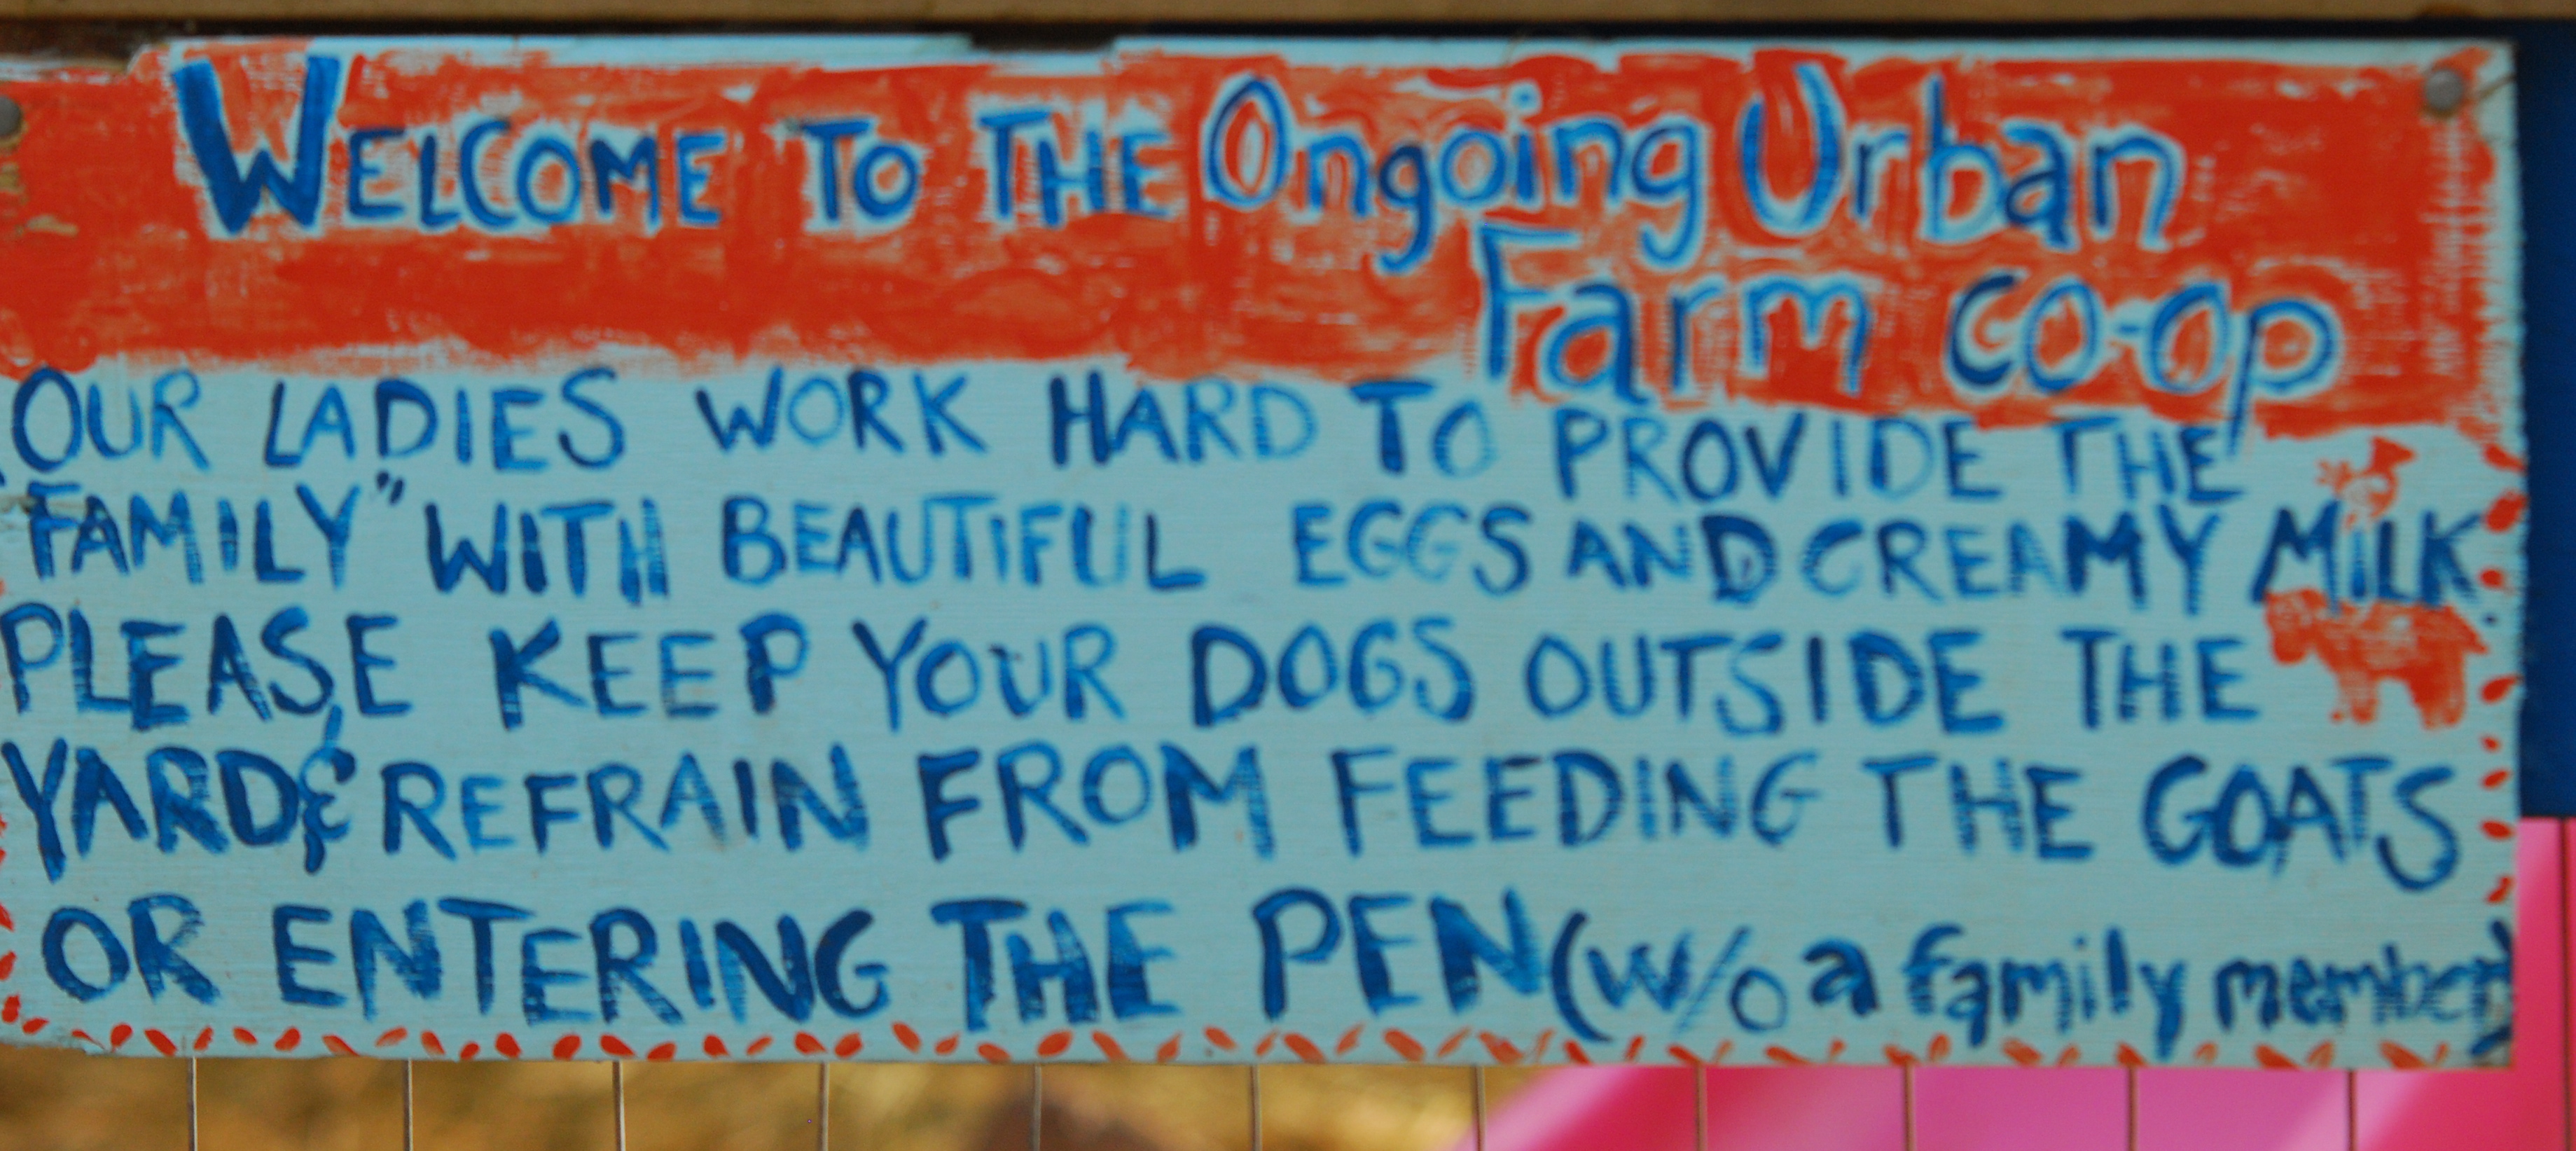 WELCOME TO THE Ongoing Urban
Farm co-op
OUR LADIES WORK HARD TO PROVIDE THE
"FAMILY" WITH BEAUTIFUL EGGS AND CREAMY MILK.
PLEASE KEEP YOUR DOGS OUTSIDE THE
YARD & REFRAIN FROM FEEDING THE GOATS
OR ENTERING THE PEN (w/o a family member)